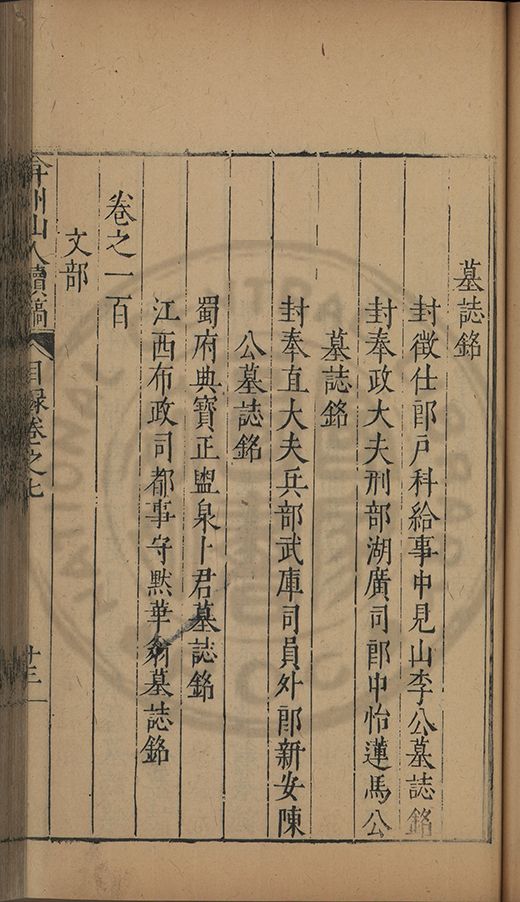 墓誌銘
封徵仕郎戶科給事中見山李公墓誌銘
封奉政大夫刑部湖廣司郎中怡蓮馬公
墓誌銘
封奉直大夫兵部武庫司員外郎新安陳
公墓誌銘
蜀府典寶正盟泉卜君墓誌銘
江西布政司都事守默華翁墓誌銘
卷之一百
文部
弇州山人續稿
目錄卷之七
廿三